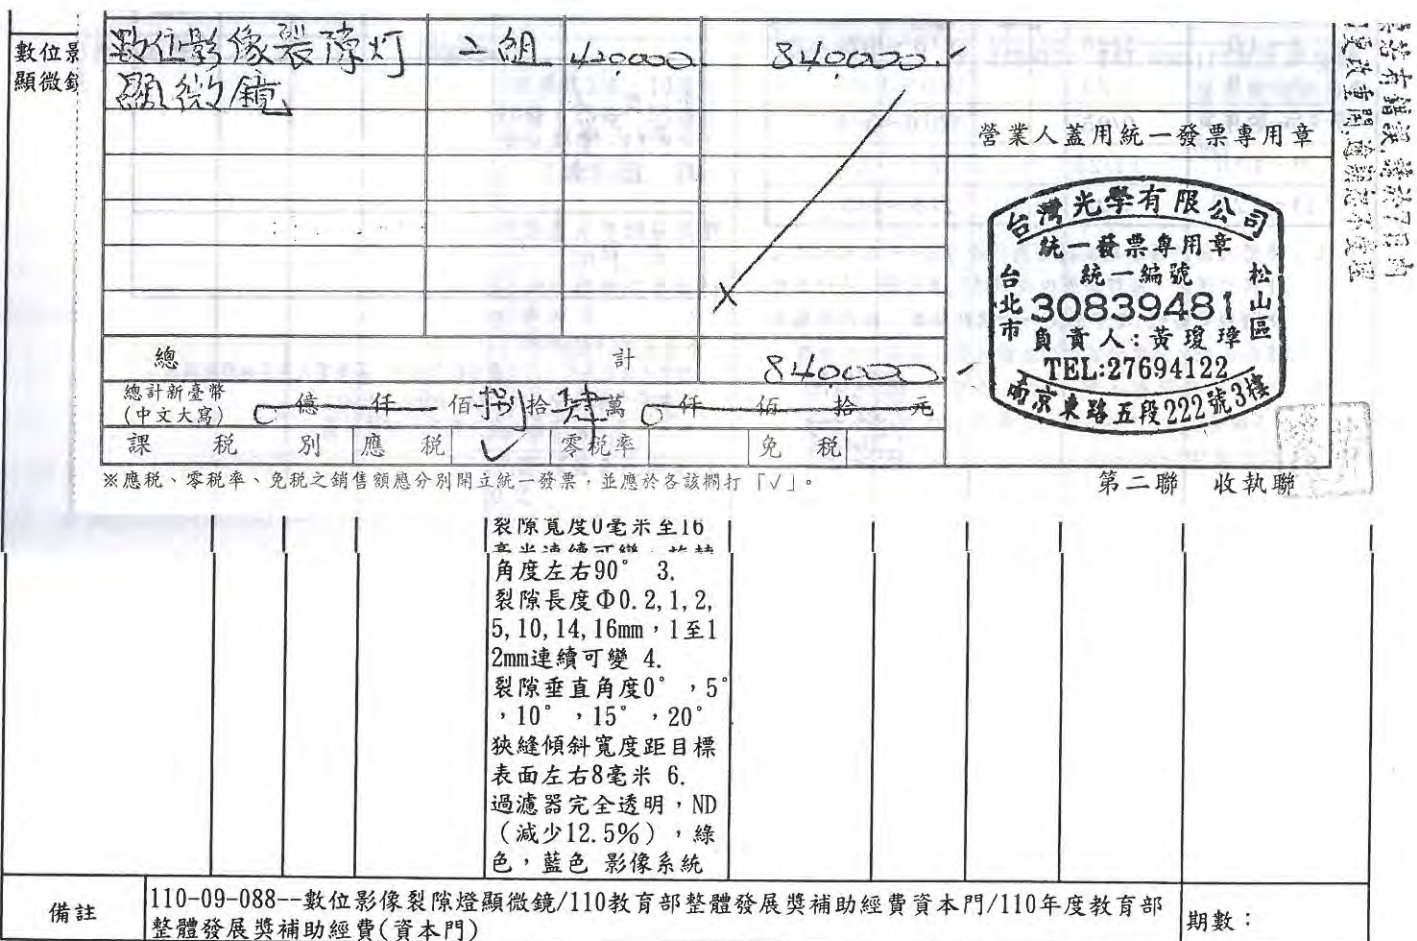 數位影
顯微
數位影像裂隙灯 二組 420000 840000.
顯微鏡
營業人蓋用統一發票專用章
台灣光學有限公司
統一發票專用章
統一編號
台北市
松山區
30839481
負責人:黃瓊璋
TEL:27694122
南京東路五段222號3樓
總 計 840000.
總計新臺幣
(中文大寫) 0 億 仟 佰 捌 拾 肆 萬 0 仟 佰 拾 元
課 稅 別 應 稅 ✓ 零稅率 免 稅
※應稅、零稅率、免稅之銷售額應分別開立統一發票,並應於各該欄打「✓」。
第二聯 收執聯
裂隙寬度0毫米至16
角度左右90° 3.
裂隙長度Φ0.2,1,2,
5,10,14,16mm,1至1
2mm連續可變 4.
裂隙垂直角度0° ,5°
,10° ,15° ,20°
狹縫傾斜寬度距目標
表面左右8毫米 6.
過濾器完全透明,ND
(減少12.5%),綠
色,藍色 影像系統
備註
110-09-088--數位影像裂隙燈顯微鏡/110教育部整體發展獎補助經費資本門/110年度教育部
整體發展獎補助經費(資本門)
期數: